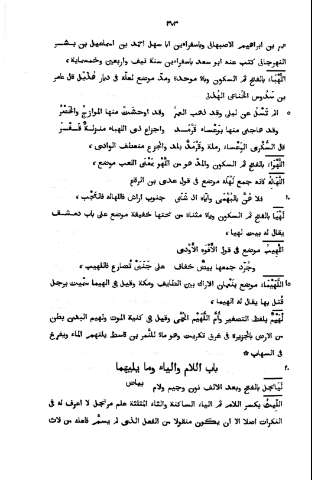 ٣٧٣
عمر بن ابراهيم الاصبهاني وباسفراين ابا سهل احمد بن اسماعيل بن بشر
النهرجاني كتب عنه ابو سعد باسفراين سنة نيف واربعين وخمسماية،
اللَّهْباء بالفتح ثم السكون وباء موحدة، ومد موضع لعله في ديار هذيل قال عامر
بن سدوس الخناعي الهذلي
٥ الم تسل عن ليلى وقد ذهب العمر وقد اوحشت منها الموازج والحضر
وقد هاجني منها بوعساء قرمد واجزاع ذي اللهباء منزلة قفر
قال السكري الوعساء رملة وقرمد بلد والجزع منعطف الوادي،
اللهواء بالفتح ثم السكون والمد هو من اللهو بمعنى اللعب موضع،
اللهالة كانه جمع لهله موضع في قول عدي بن الرقاع
١٠ فلا هن بالبهمى واياه اذ شتى جنوب اراش فاللهاله فالعجب،
لَهْيَا بالفتح ثم السكون وياء مثناة من تحتها خفيفة موضع على باب دمشق
يقال له بيت لهيا،
اللهيب موضع في قول الافوه الاودي
وجرد جمعها بيض خفاف على جنبي تضارع فاللهيب،
١٥ اللهيماء موضع بنعمان الاراك بين الطايف ومكة وقيل في الهيما سميت برجل
قتل بها يقال له الهيما،
لهيم بلفظ التصغير وام اللهيم الحمى وقيل في كنية الموت ولهيم البدن بطن
من الارض بالجزيرة في غرق تكريت وهو ماء للنمر بن قاسط يلتهم الماء ويفرغ
في السهاب ❊
٢٠ باب اللام والياء وما يليهما
لَيَاجُل بالفتح وبعد الالف نون وجيم ولام بياض
الليث بكسر اللام ثم الياء الساكنة والثاء المثلثة علم مرتجل لا اعرف له في
النكرات اصلا الا ان يكون منقولا من الفعل الذي لم يسم فاعله من لاث